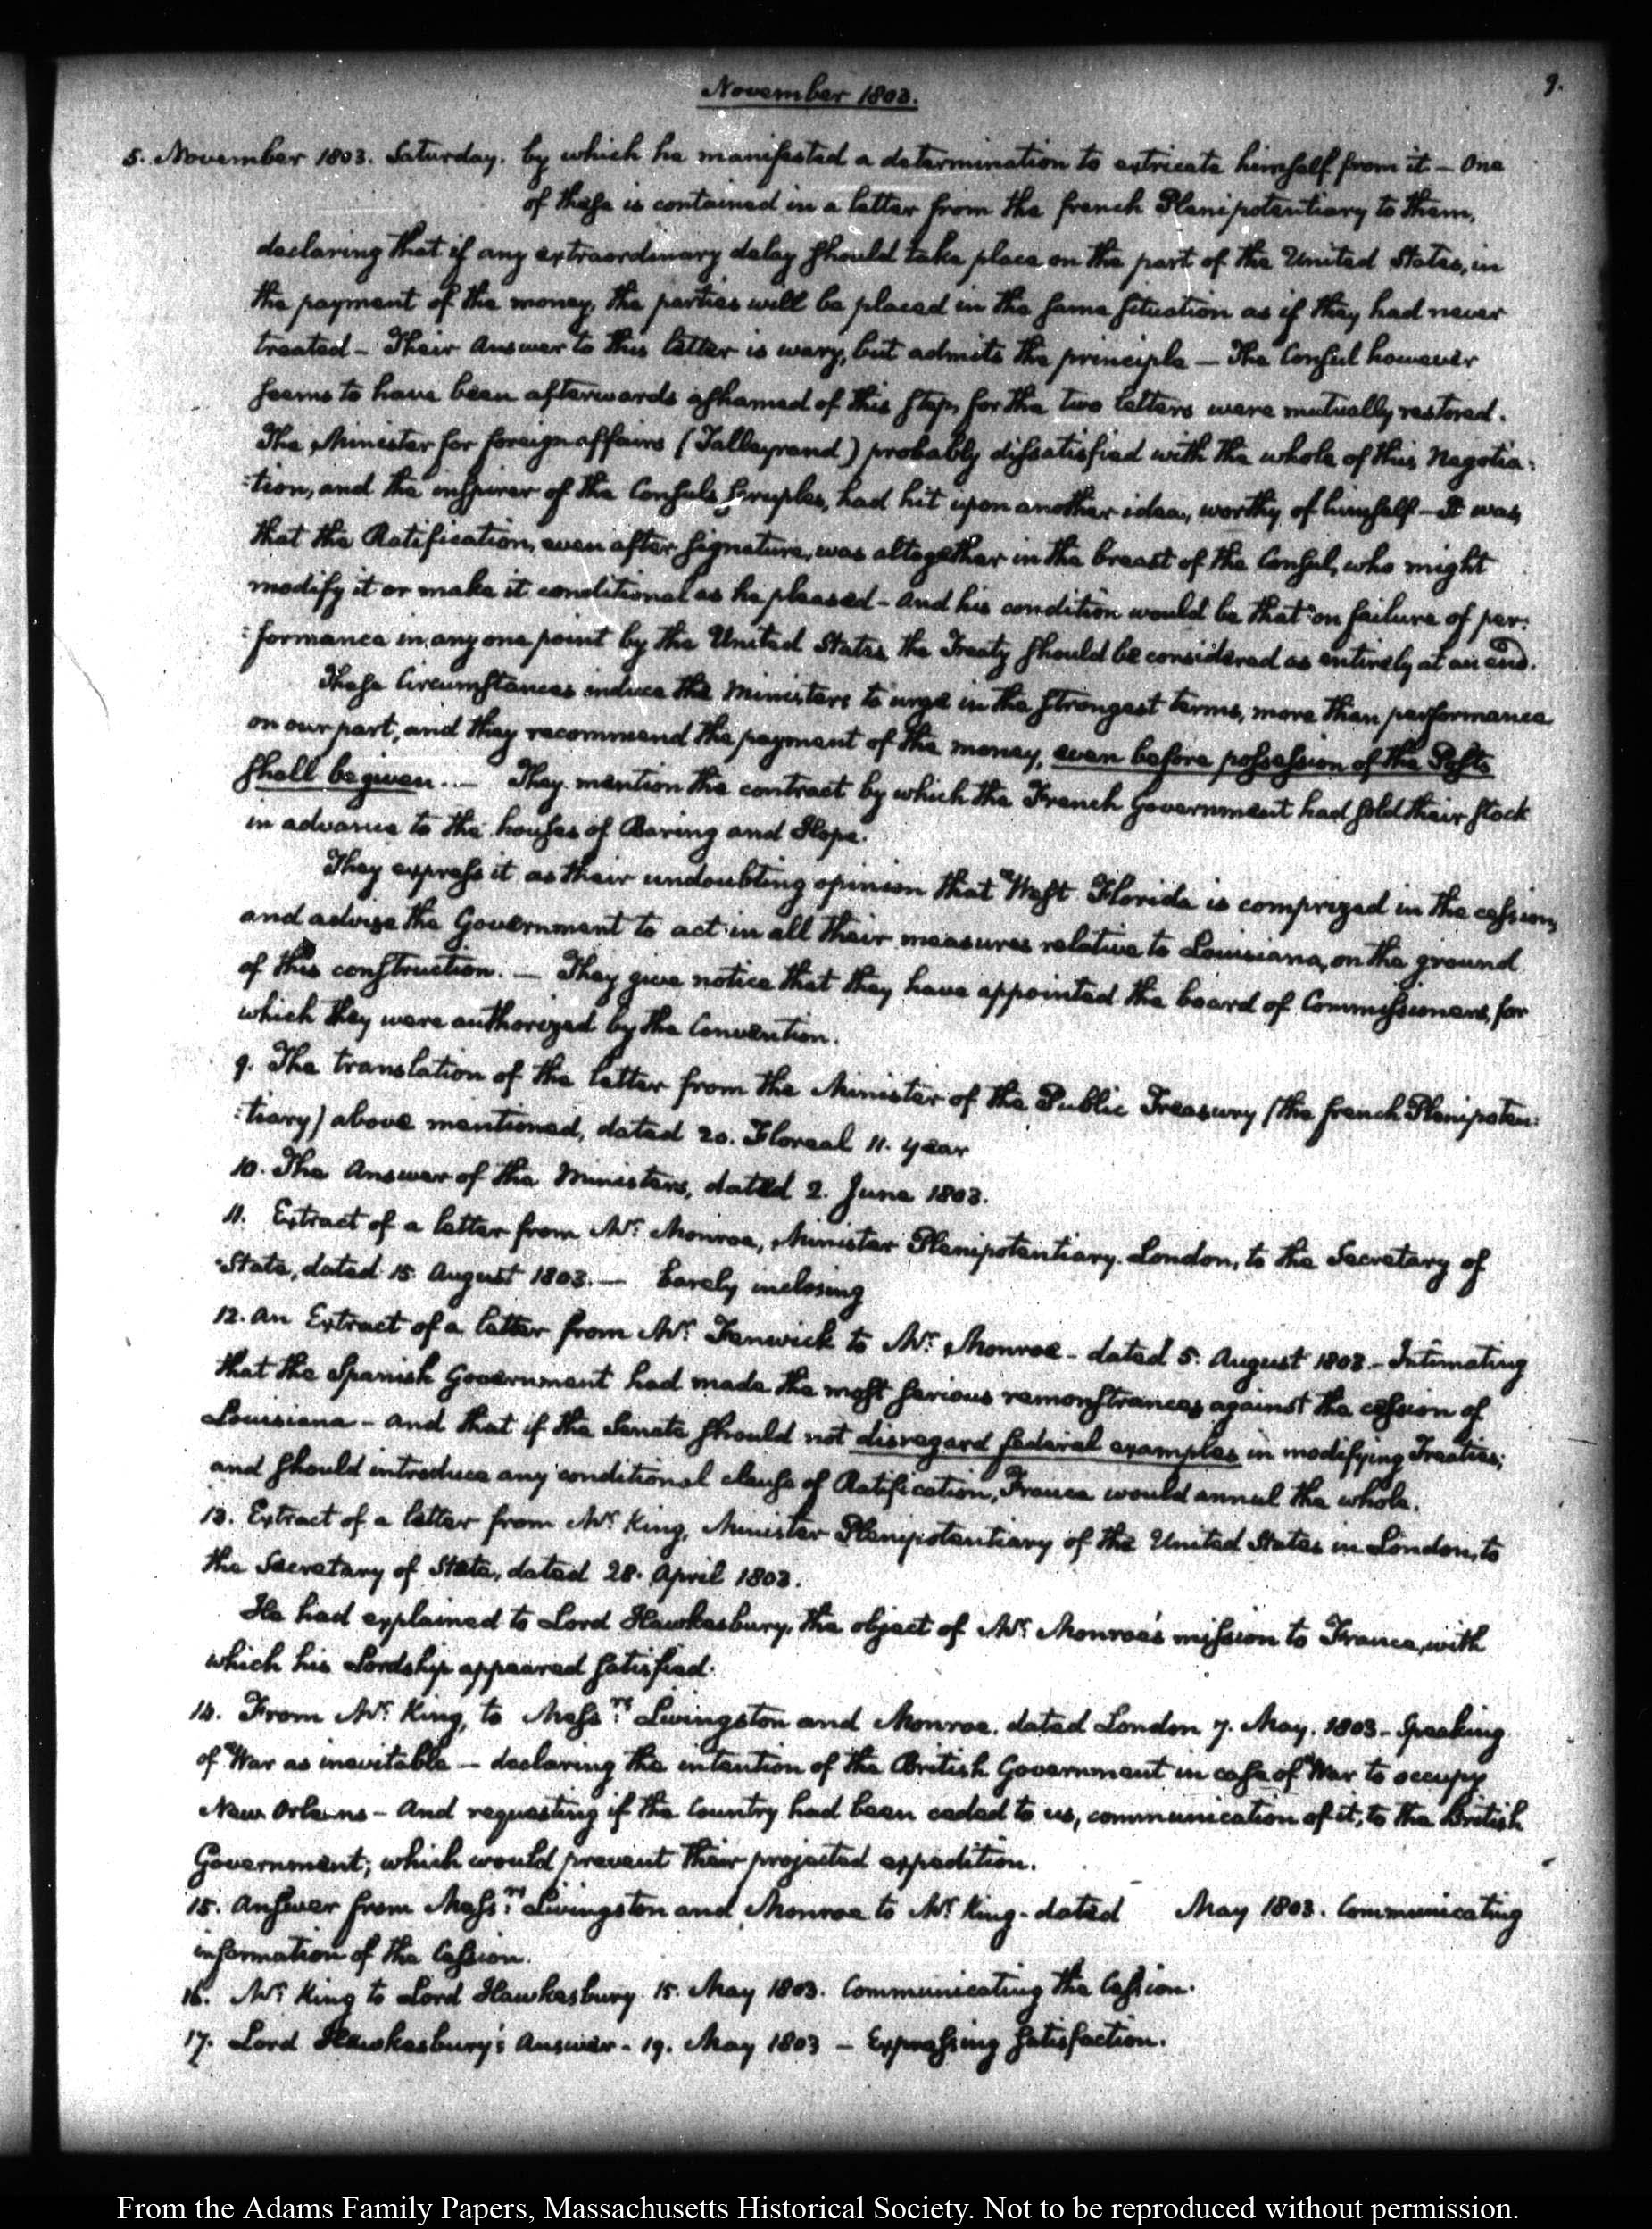 November 1803.
9.
5. November 1803. Saturday. by which he manifested a determination to extricate himself from it — One
of these is contained in a letter from the french Plenipotentiary to them,
declaring that if any extraordinary delay should take place on the part of the United States, in
the payment of the money, the parties will be placed in the same situation as if they had never
treated — Their Answer to this letter is wary, but admits the principle — The Consul however
seems to have been afterwards ashamed of this step, for the two letters were mutually restored.
The Minister for foreign affairs (Talleyrand) probably dissatisfied with the whole of this Negotia:
:tion, and the inspirer of the Consuls scruples, had hit upon another idea, worthy of himself — It was,
that the Ratification, even after signature, was altogether in the breast of the Consul, who might
modify it or make it conditional as he pleased — And his condition would be that on failure of per:
:formance in any one point by the United States, the Treaty should be considered as entirely at an end.
These Circumstances induce the Ministers to urge in the strongest terms, more than performance
on our part, and they recommend the payment of the money, even before possession of the Posts
shall be given. — They mention the contract by which the French Government had sold their stock
in advance to the houses of Baring and Hope.
They express it as their undoubting opinion that West Florida is comprized in the cession,
and advise the Government to act in all their measures relative to Louisiana, on the ground
of this construction. — They give notice that they have appointed the board of Commissioners, for
which they were authorized by the Convention.
9. The translation of the letter from the Minister of the Public Treasury (the french Plenipoten:
:tiary) above mentioned, dated 20. Floreal 11. year
10. The Answer of the Ministers, dated 2. June 1803.
11. Extract of a letter from Mr. Monroe, Minister Plenipotentiary. London, to the Secretary of
State, dated 15. August 1803. — barely inclosing
12. An Extract of a letter from Mr. Fenwick to Mr. Monroe — dated 5. August 1803. — Intimating
that the Spanish Government had made the most serious remonstrances against the cession of
Louisiana — And that if the Senate should not disregard federal examples in modifying Treaties;
and should introduce any conditional clause of Ratification, France would annul the whole.
13. Extract of a letter from Mr. King, Minister Plenipotentiary of the United States in London, to
the Secretary of State, dated 28. April 1803.
He had explained to Lord Hawkesbury, the object of Mr. Monroe's mission to France, with
which his Lordship appeared satisfied.
14. From Mr. King, to Messrs. Livingston and Monroe. dated London 7. May. 1803 — Speaking
of War as inevitable — declaring the intention of the British Government in case of War to occupy
New Orleans — And requesting if the Country had been ceded to us, communication of it, to the British
Government; which would prevent their projected expedition.
15. Answer from Messrs. Livingston and Monroe to Mr. King — dated May 1803. Communicating
information of the Cession.
16. Mr. King to Lord Hawkesbury 15. May 1803. Communicating the Cession.
17. Lord Hawkesbury's Answer — 19. May 1803 — Expressing satisfaction.
From the Adams Family Papers, Massachusetts Historical Society. Not to be reproduced without permission.